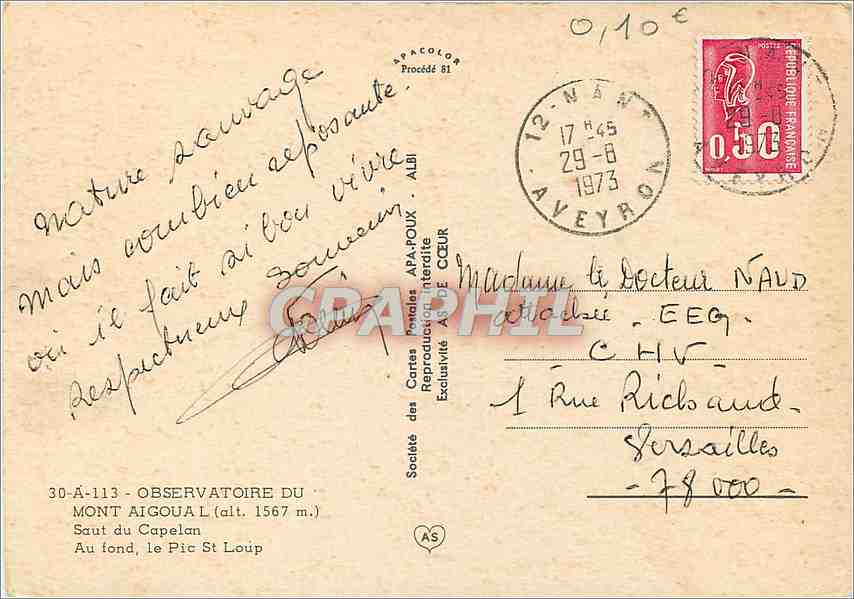 0,10 €
APACOLOR
Procédé 81
Nature sauvage
mais combien reposante.
où il fait si bon vivre
Respectueux Souvenir.
12 - NANT
17 H 45
29 - 8
1973
AVEYRON
POSTES
RÉPUBLIQUE FRANÇAISE
0,50
17 H 45
29 - 8
1973
Société des Cartes Postales APA-POUX - ALBI
Reproduction Interdite
Exclusivité AS DE CŒUR
CPARPHIL
Madame le Docteur NAUD
attachée . EEG .
CHV
1 Rue Richaud -
Versailles
- 78 000 -
30-A-113 - OBSERVATOIRE DU
MONT AIGOUAL (alt. 1567 m.)
Saut du Capelan
Au fond, le Pic St Loup
AS